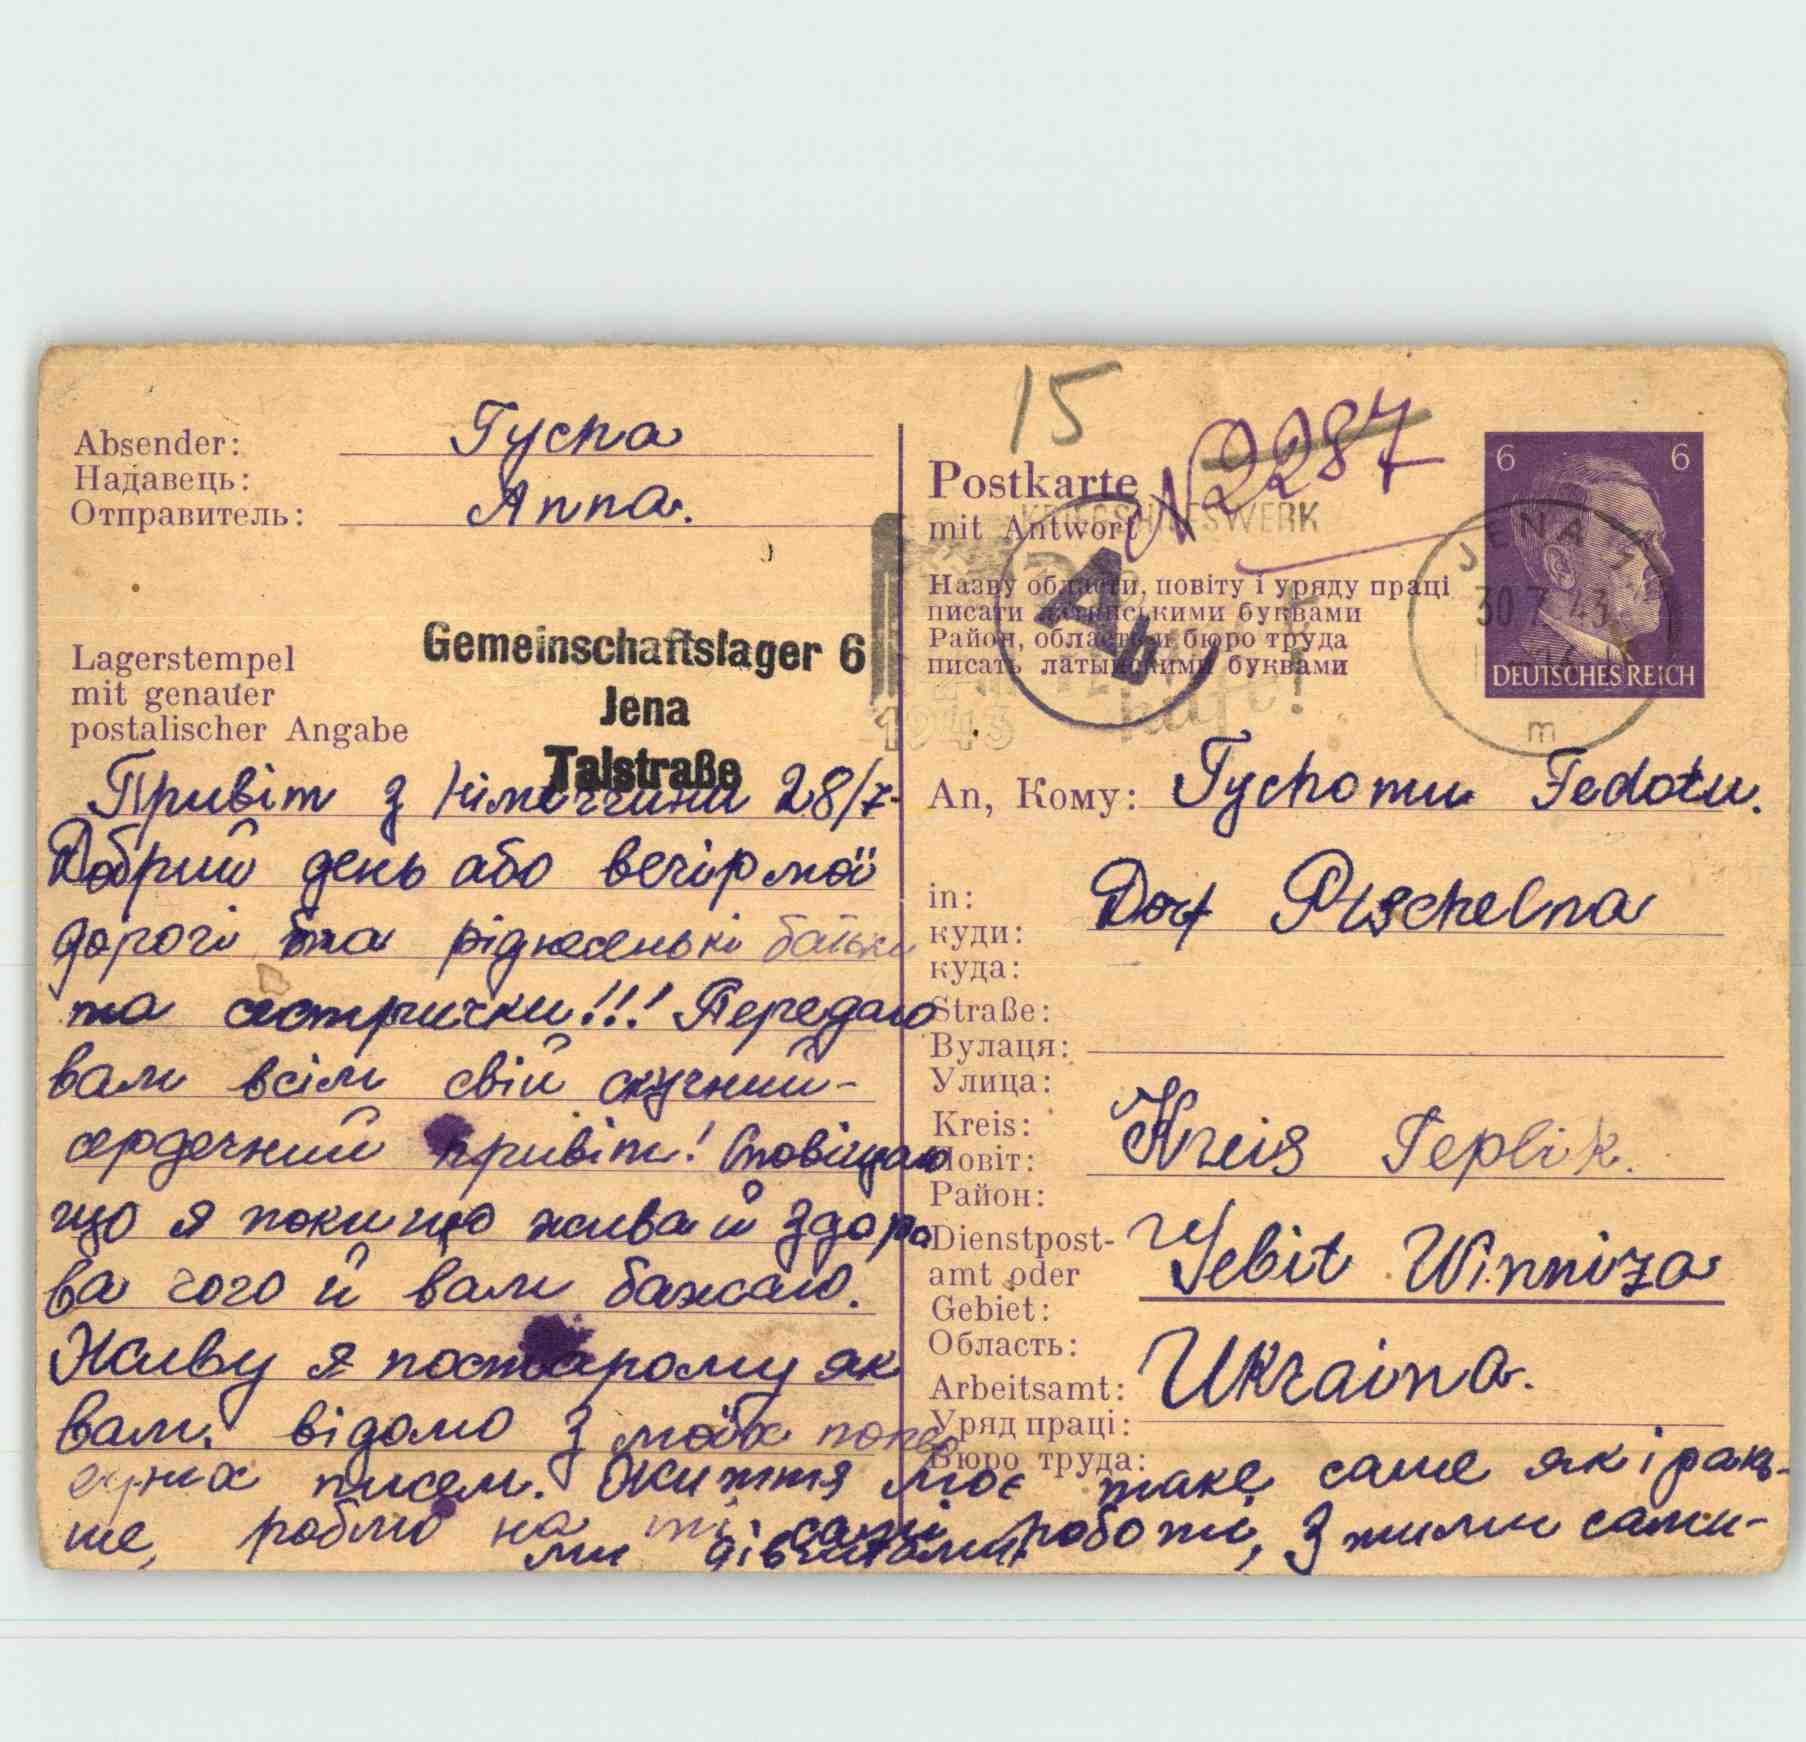 15
N 2287
Absender: Tycha
Надавець:
Отправитель: Anna.
Lagerstempel
mit genauer
postalischer Angabe
Gemeinschaftslager 6
Jena
Talstraße
Привіт з Німеччини 28/7-
Добрий день або вечір мої
дорогі та ріднесенькі батьки
та сестрички!!! Передаю
вам всім свій скучний-
сердечний привіт! Сповіщаю
що я поки що жива й здоро
ва чого й вам бажаю.
Живу я постарому як
вам відомо з моїх попе
едних писем. Життя моє таке саме як і рань-
ше, роблю на ті самі роботі, з тими сами-
ми дівчатами.
Postkarte
mit Antwort
KRIEGSHILFSWERK
1943
Ab
Назву области, повіту і уряду праці
писати латинськими буквами
Район, область и бюро труда
писать латынскими буквами
6 6
DEUTSCHES REICH
JENA
30.7.43
m
An, Кому: Tychomu Fedotu.
in:
куди: Dorf Pischelna
куда:
Straße:
Вулаця:
Улица:
Kreis:
Повіт: Kreis Teplik.
Район:
Dienstpost-
amt oder Gebit Winniza
Gebiet:
Область:
Arbeitsamt: Ukraina.
Уряд праці:
Бюро труда: